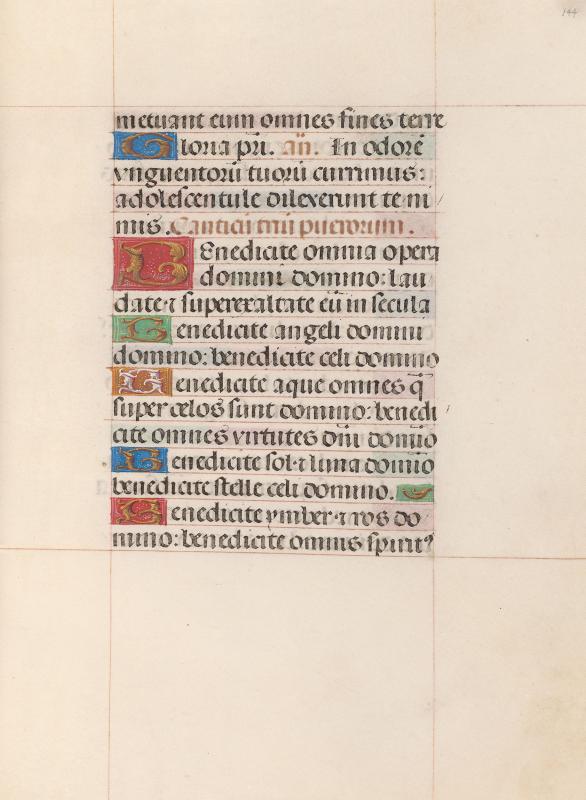 144
metuant eum omnes fines terre
Gloria pri. añ. In odorē
vnguentorū tuorū currimus:
adolescentule dilexerunt te ni
mis. Canticū triū puerorum.
Benedicite omnia opera
domini domino: lau
date ⁊ superexaltate eū in secula
Benedicite angeli domini
domino: benedicite celi domino
Benedicite aque omnes q̄
super celos sunt domino: benedi
cite omnes virtutes dñi domīo
Benedicite sol ⁊ luna domīo
benedicite stelle celi domino.
Benedicite ymber ⁊ ros do
mino: benedicite omnis spiritꝰ